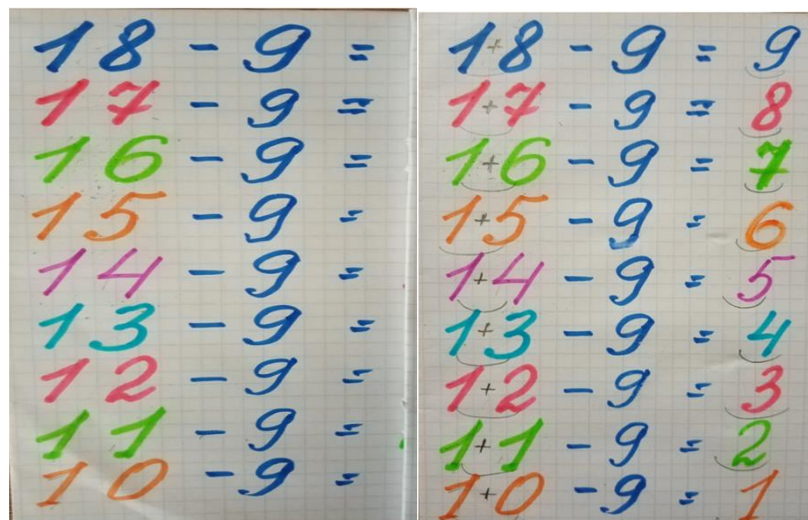 18 - 9 =
17 - 9 =
16 - 9 =
15 - 9 =
14 - 9 =
13 - 9 =
12 - 9 =
11 - 9 =
10 - 9 =
1+8 - 9 = 9
1+7 - 9 = 8
1+6 - 9 = 7
1+5 - 9 = 6
1+4 - 9 = 5
1+3 - 9 = 4
1+2 - 9 = 3
1+1 - 9 = 2
1+0 - 9 = 1